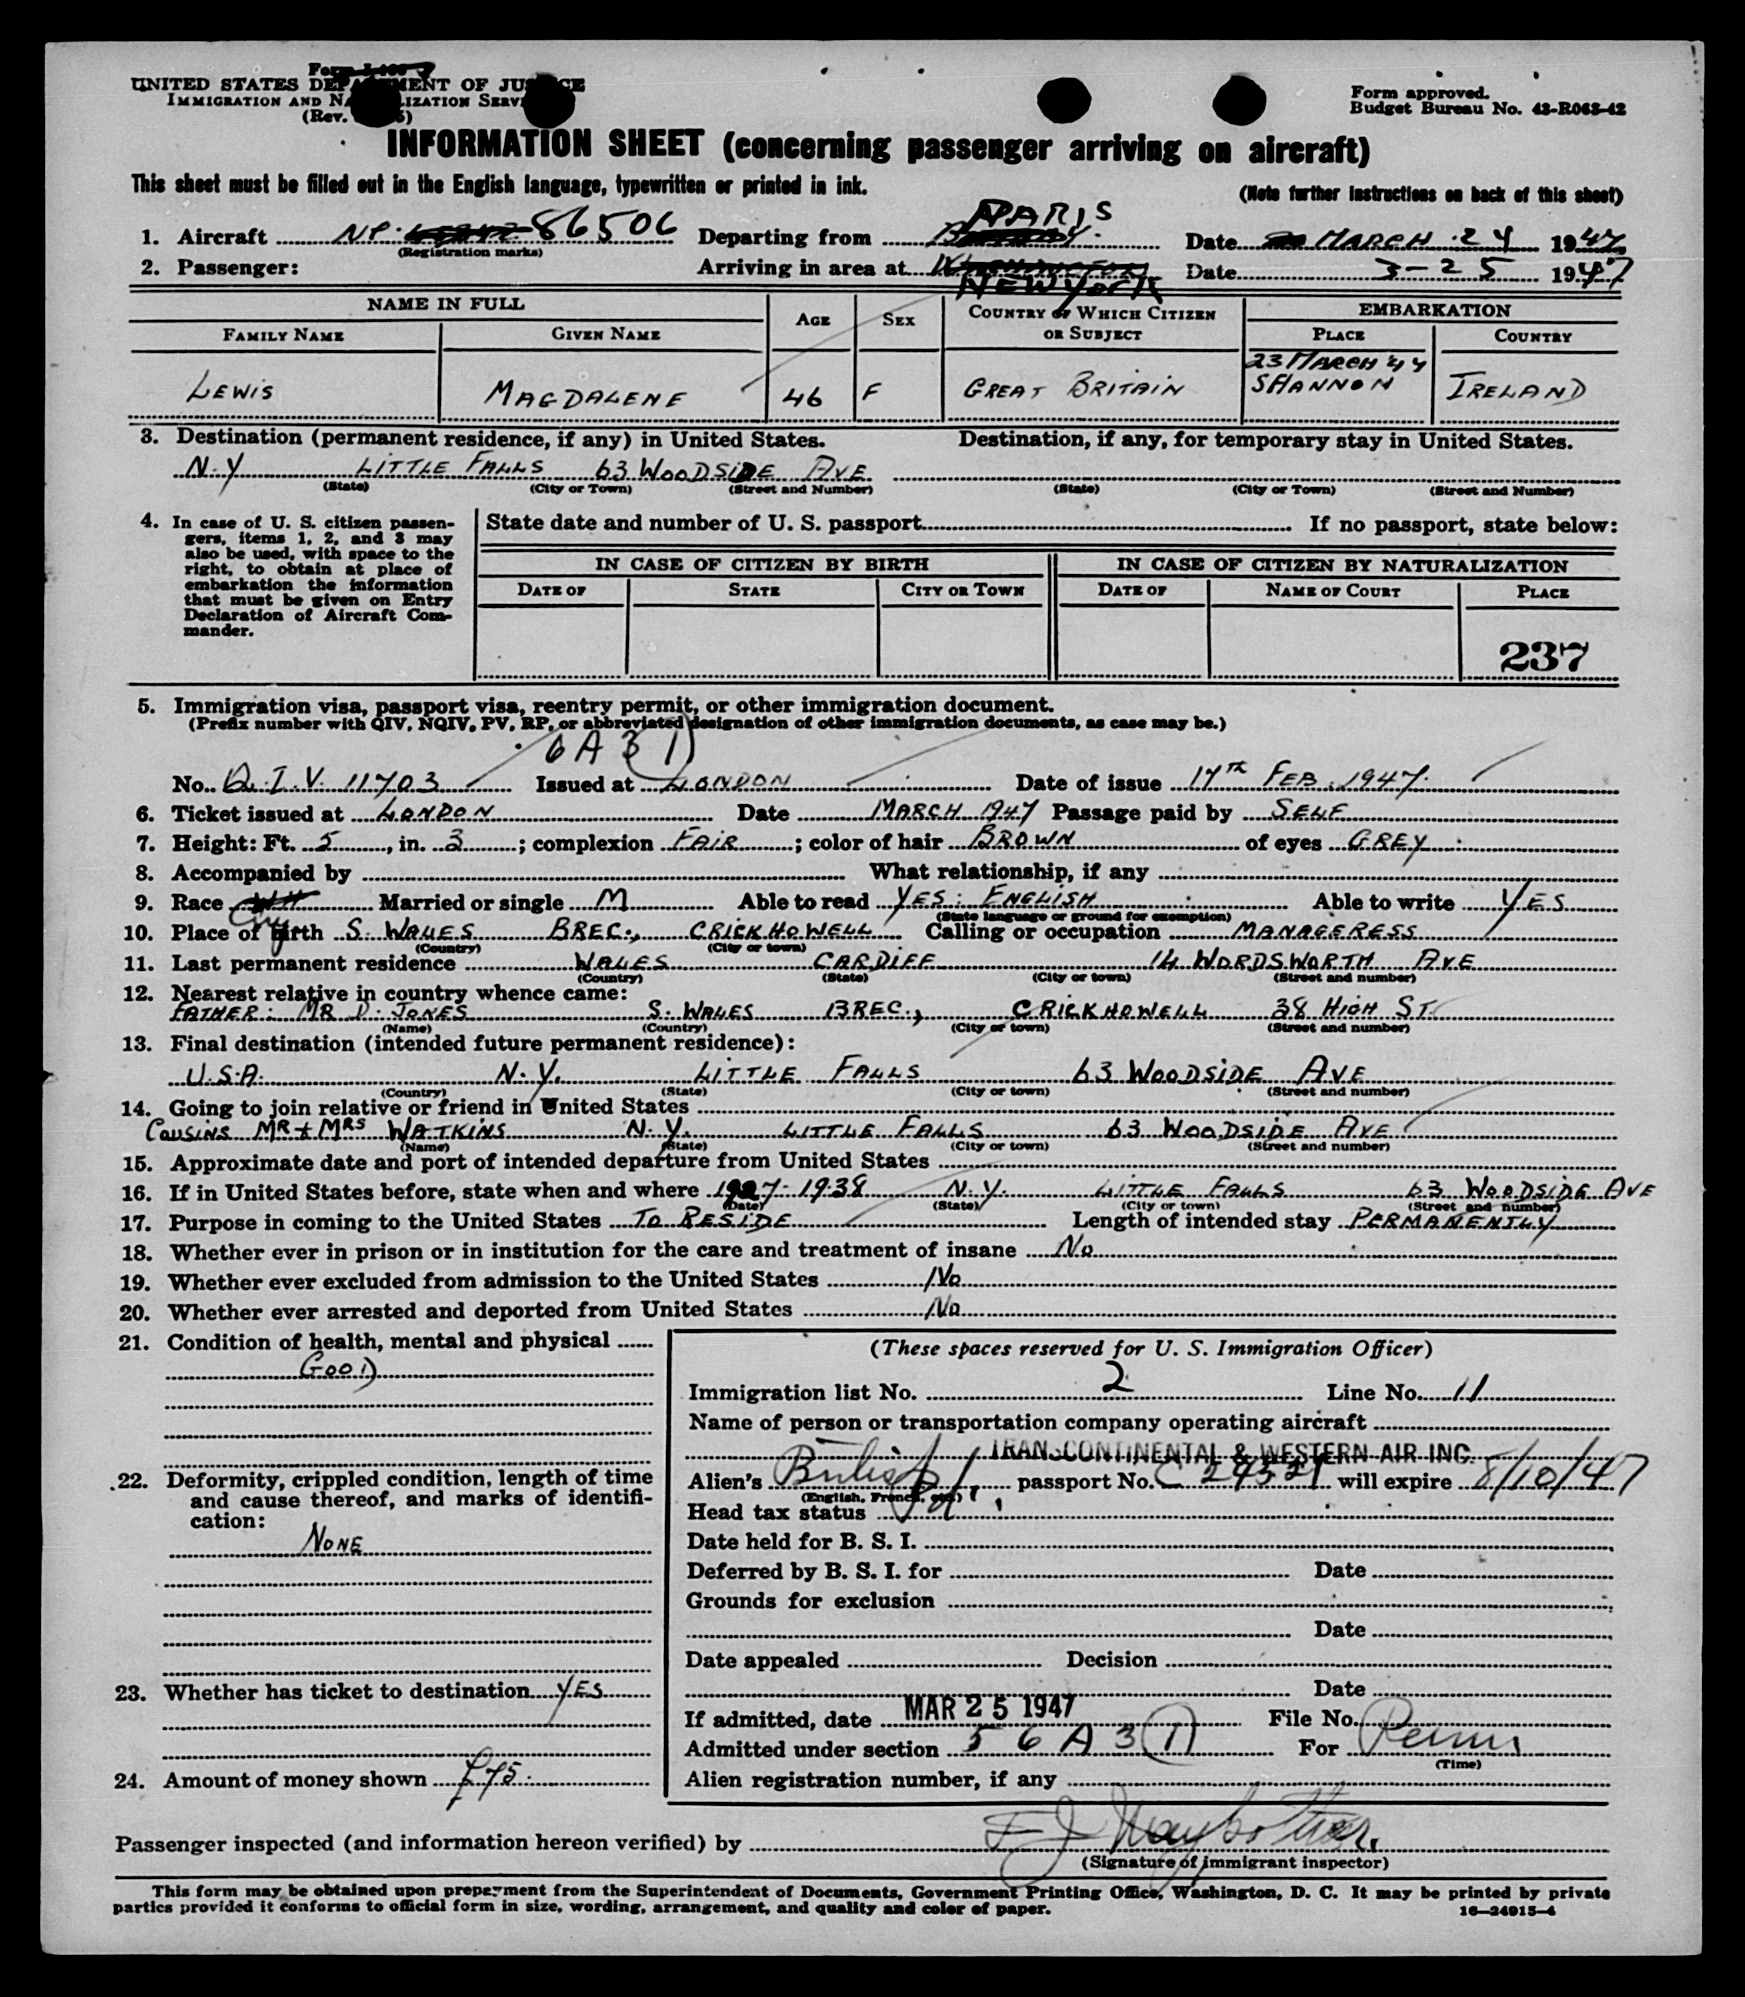 UNITED STATES DEPARTMENT OF JUSTICE
IMMIGRATION AND NATURALIZATION SERVICE
(Rev.
Form approved.
Budget Bureau No. 43-R063-42
INFORMATION SHEET (concerning passenger arriving on aircraft)
This sheet must be filled out in the English language, typewritten or printed in ink.
(Note further instructions on back of this sheet)
1. Aircraft NP. 86506 Departing from PARIS Date MARCH 24 1947
(Registration marks)
2. Passenger: Arriving in area at NEW York Date 3-25 1947
NAME IN FULL AGE SEX COUNTRY OF WHICH CITIZEN OR SUBJECT EMBARKATION
FAMILY NAME GIVEN NAME PLACE COUNTRY
23 MARCH '47
LEWIS MAGDALENE 46 F GREAT BRITAIN SHANNON IRELAND
3. Destination (permanent residence, if any) in United States. Destination, if any, for temporary stay in United States.
N.Y LITTLE FALLS 63 WOODSIDE AVE
(State) (City or Town) (Street and Number) (State) (City or Town) (Street and Number)
4. In case of U. S. citizen passen-
gers, items 1, 2, and 3 may
also be used, with space to the
right, to obtain at place of
embarkation the information
that must be given on Entry
Declaration of Aircraft Com-
mander.
State date and number of U. S. passport If no passport, state below:
IN CASE OF CITIZEN BY BIRTH IN CASE OF CITIZEN BY NATURALIZATION
DATE OF STATE CITY OR TOWN DATE OF NAME OF COURT PLACE
237
5. Immigration visa, passport visa, reentry permit, or other immigration document.
(Prefix number with QIV, NQIV, PV, RP, or abbreviated designation of other immigration documents, as case may be.)
6 A 3 1)
No. Q.I.V. 11703 Issued at LONDON Date of issue 17TH FEB. 1947.
6. Ticket issued at LONDON Date MARCH 1947 Passage paid by SELF
7. Height: Ft. 5, in. 3; complexion FAIR; color of hair BROWN of eyes GREY
8. Accompanied by What relationship, if any
9. Race Married or single M Able to read YES: ENGLISH Able to write YES
(State language or ground for exemption)
10. Place of birth S. WALES BREC., CRICKHOWELL Calling or occupation MANAGERESS
(Country) (City or town)
11. Last permanent residence WALES CARDIFF 14 WORDSWORTH AVE
(Country) (State) (City or town) (Street and number)
12. Nearest relative in country whence came:
FATHER: MR D. JONES S. WALES BREC., CRICKHOWELL 38 HIGH ST.
(Name) (Country) (City or town) (Street and number)
13. Final destination (intended future permanent residence):
U.S.A. N.Y. LITTLE FALLS 63 WOODSIDE AVE
(Country) (State) (City or town) (Street and number)
14. Going to join relative or friend in United States
COUSINS MR + MRS WATKINS N.Y. LITTLE FALLS 63 WOODSIDE AVE
(Name) (State) (City or town) (Street and number)
15. Approximate date and port of intended departure from United States
16. If in United States before, state when and where 1927-1938 N.Y. LITTLE FALLS 63 WOODSIDE AVE
(Date) (State) (City or town) (Street and number)
17. Purpose in coming to the United States TO RESIDE Length of intended stay PERMANENTLY
18. Whether ever in prison or in institution for the care and treatment of insane No
19. Whether ever excluded from admission to the United States No
20. Whether ever arrested and deported from United States No
21. Condition of health, mental and physical
GOOD
22. Deformity, crippled condition, length of time
and cause thereof, and marks of identifi-
cation:
NONE
23. Whether has ticket to destination YES
24. Amount of money shown £75.
(These spaces reserved for U. S. Immigration Officer)
Immigration list No. 2 Line No. 11
Name of person or transportation company operating aircraft
TRANSCONTINENTAL & WESTERN AIR INC.
Alien's British passport No. C 29521 will expire 8/10/47
(English, French, etc.)
Head tax status Pd.
Date held for B. S. I.
Deferred by B. S. I. for Date
Grounds for exclusion
Date
Date appealed Decision
Date
If admitted, date MAR 25 1947 File No.
Admitted under section 5 6 A 3 (1) For Perm
(Time)
Alien registration number, if any
Passenger inspected (and information hereon verified) by
(Signature of immigrant inspector)
This form may be obtained upon prepayment from the Superintendent of Documents, Government Printing Office, Washington, D. C. It may be printed by private
parties provided it conforms to official form in size, wording, arrangement, and quality and color of paper.
16—24915-4